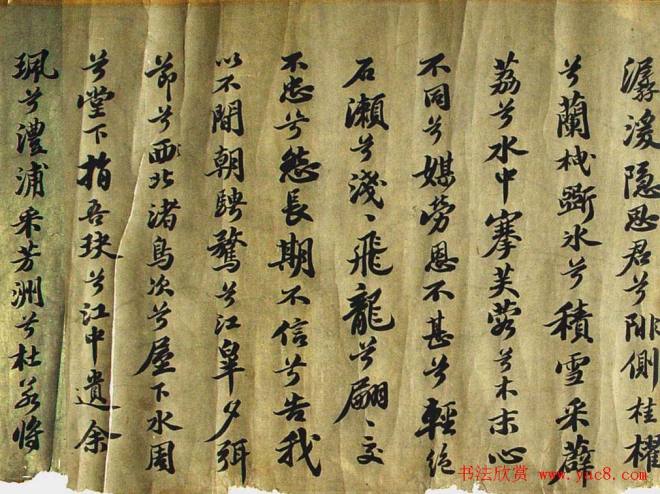 潺湲隱思君兮陫側桂櫂
兮蘭枻斲冰兮積雪采薜
荔兮水中搴芙蓉兮木末心
不同兮媒勞恩不甚兮輕絕
石瀨兮淺〻飛龍兮翩〻交
不忠兮怨長期不信兮告我
以不閒朝騁騖兮江皋夕弭
節兮西北渚鳥次兮屋下水周
兮堂下捐吾玦兮江中遺余
珮兮澧浦采芳洲兮杜若將
书法欣赏 www.yac8.com